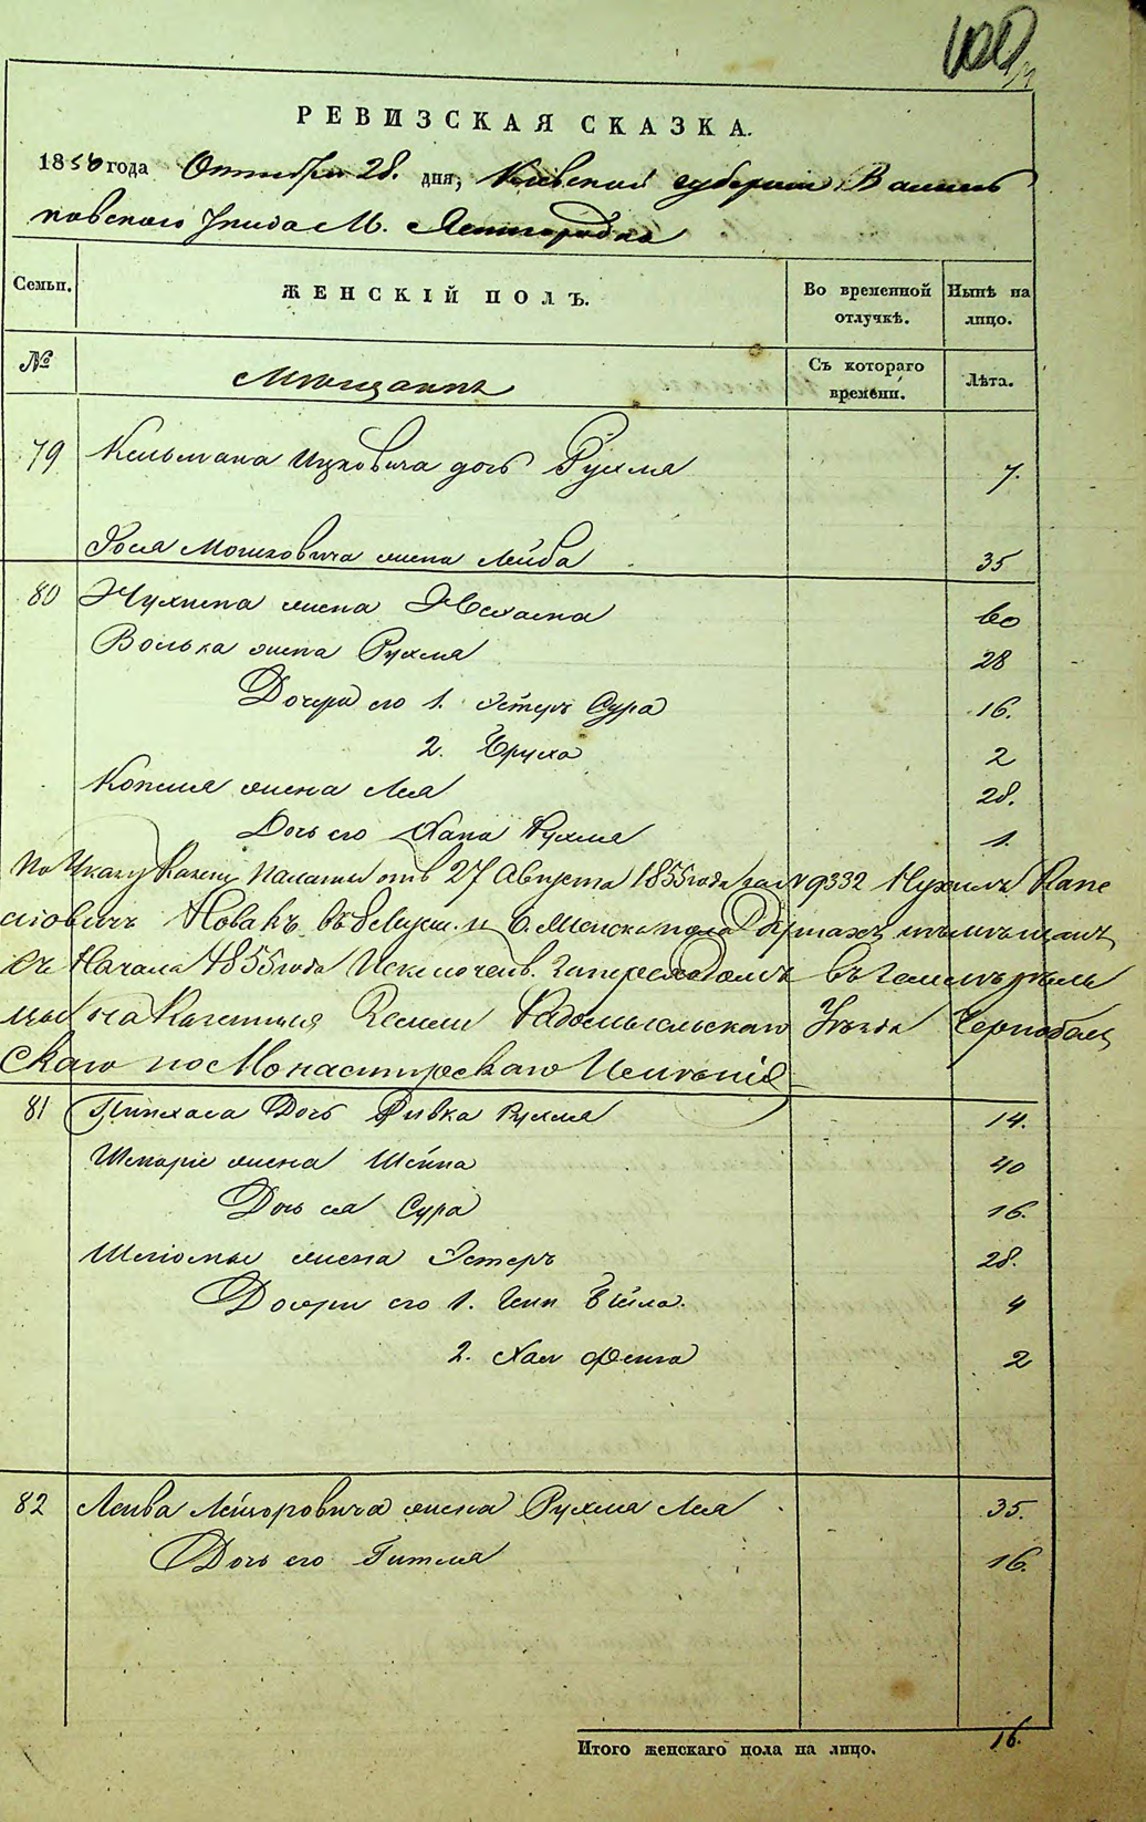 РЕВИЗСКАЯ СКАЗКА.
1850 года Октября 28. дня, Киевской губернии Василь
ковского Уезда М.
Семьи.
ЖЕНСКІЙ ПОЛЪ.
Во временной отлучкѣ.
Нынѣ на лицо.
№
Мѣщанѣ
Съ котораго времени.
Лѣта.
79 Кельмана Ицковича дочь Рухля 7.
Мошковича жена Лейба 35
80 Нухима жена 60
Волька жена Рухля 28
Дочери его 1. Эстеръ Сура 16.
2. Бруха 2
Копеля жена Лея 28.
Дочь его Хана Рухля 1.
По Указу Казен. Палаты отъ 27 Августа 1855 года за № 9332 Нухимъ
Новакъ въ 8 Мужш. и 6. Женска пола
съ Начала 1855 года Исключенъ. въ
на Казенныя Земли Радомысльскаго Уѣзда
Скаго по Монастырскаго Имѣнія
81 Пинхаса Дочь Ривка Рухля 14.
жена Шейна 40
Дочь ея Сура 16.
Шліомы жена Эстеръ 28.
Дочери его 1. Бейла. 4
2. Фейга 2
82 Лейба Лейзоровича жена Рухля Лея 35.
Дочь его Гитля 16.
Итого женскаго пола на лицо. 16.